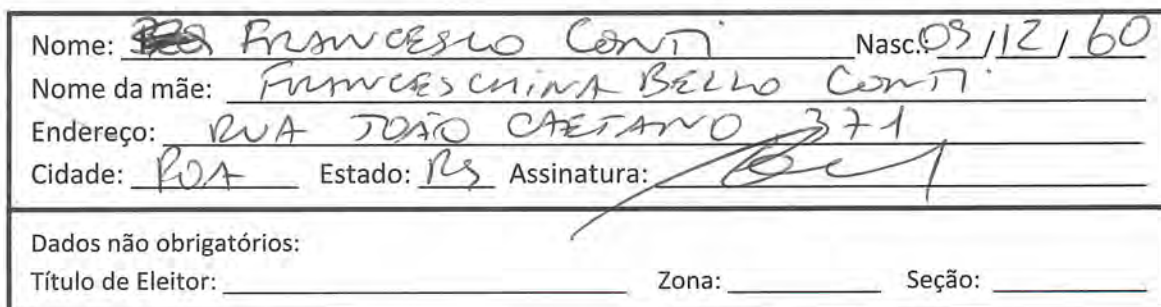 Nome: FRANCESCO CONTI Nasc.: 09/12/60
Nome da mãe: FRANCESCHINA BELLO CONTI
Endereço: RUA JOÃO CAETANO 371
Cidade: POA Estado: RS Assinatura:
Dados não obrigatórios:
Título de Eleitor: Zona: Seção: